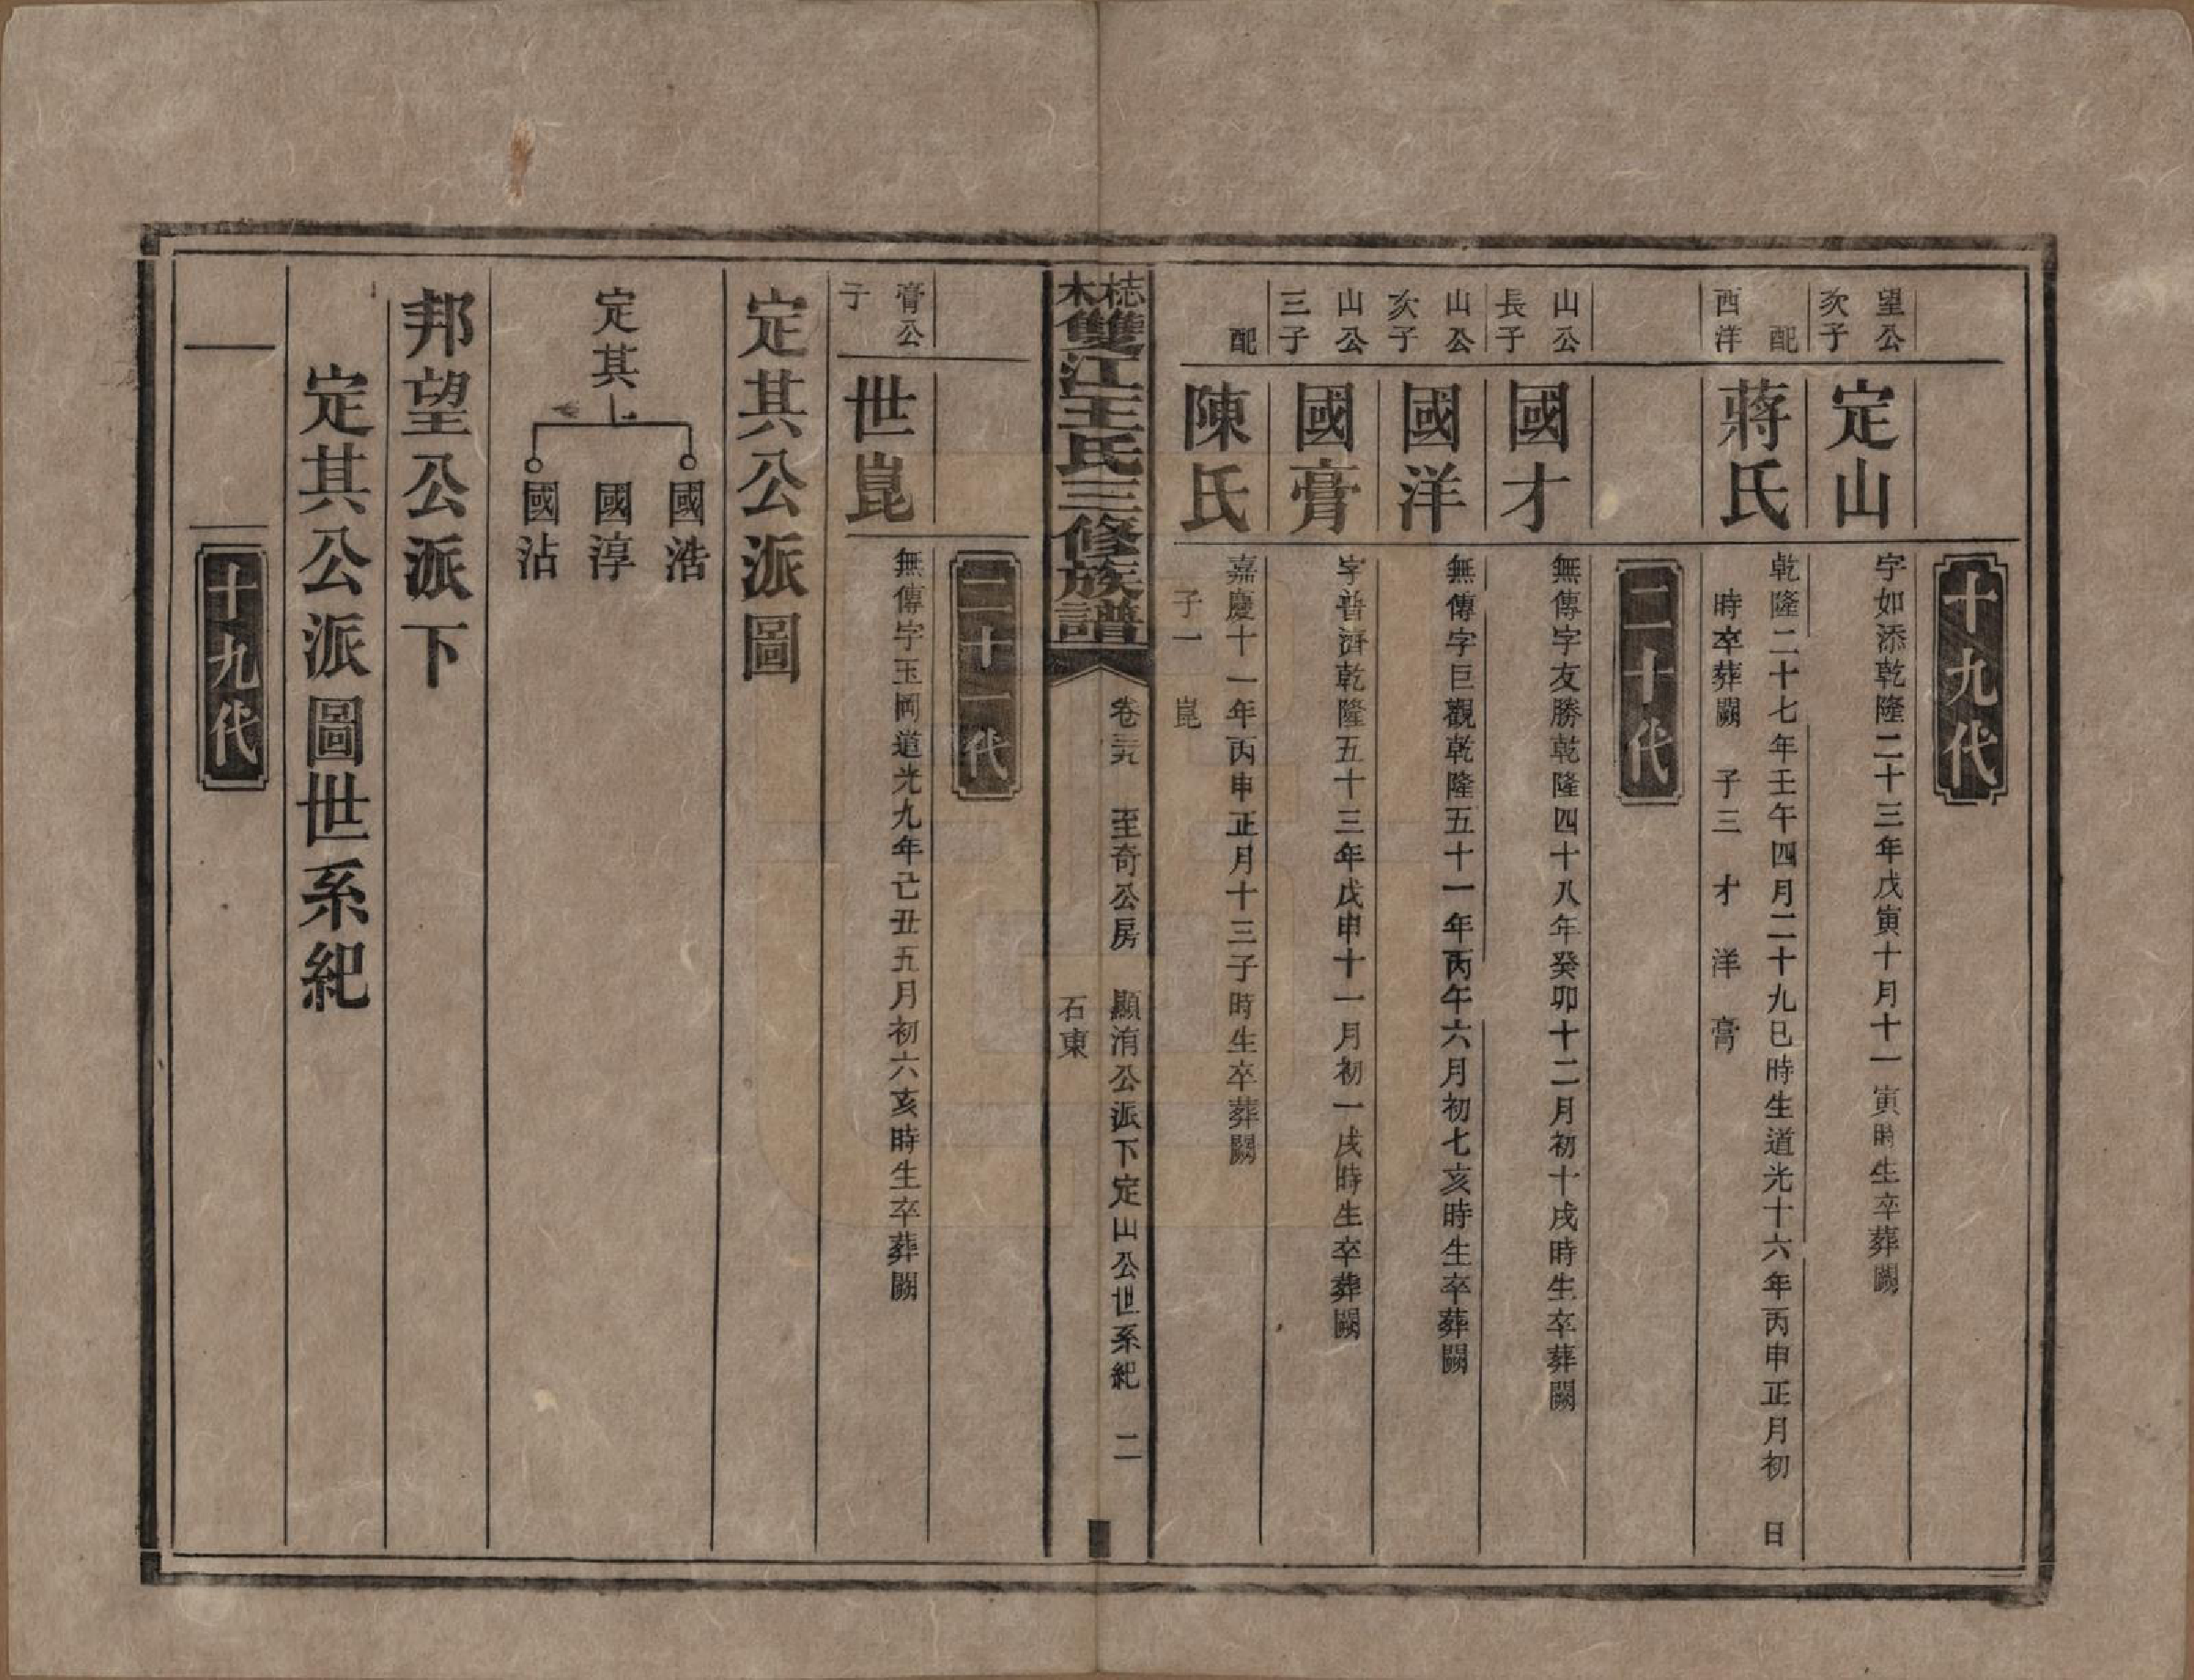 十九代
望公次子
定山
字如添乾隆二十三年戊寅十月十一寅時生卒葬闕
配西洋
蔣氏
乾隆二十七年壬午四月二十九巳時生道光十六年丙申正月初　日
時卒葬闕　子三　才　洋　膏
二十代
山公長子
國才
無傳字友勝乾隆四十八年癸卯十二月初十戌時生卒葬闕
山公次子
國洋
無傳字巨觀乾隆五十一年丙午六月初七亥時生卒葬闕
山公三子
國膏
字普濟乾隆五十三年戊申十一月初一戌時生卒葬闕
配
陳氏
嘉慶十一年丙申正月十三子時生卒葬闕
子一　崑
梽木雙江王氏三修族譜
卷三十五　至奇公房　顯洧公派下定山公世系紀　二
石東
二十一代
膏公子
世崑
無傳字玉岡道光九年己丑五月初六亥時生卒葬闕
定其公派圖
定其
國浩
國淳
國沾
邦望公派下
定其公派圖世系紀
十九代